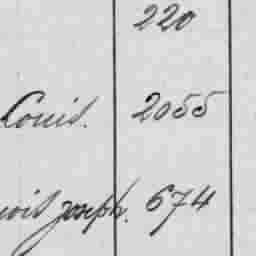 220
Louis. 2055
joseph. 674